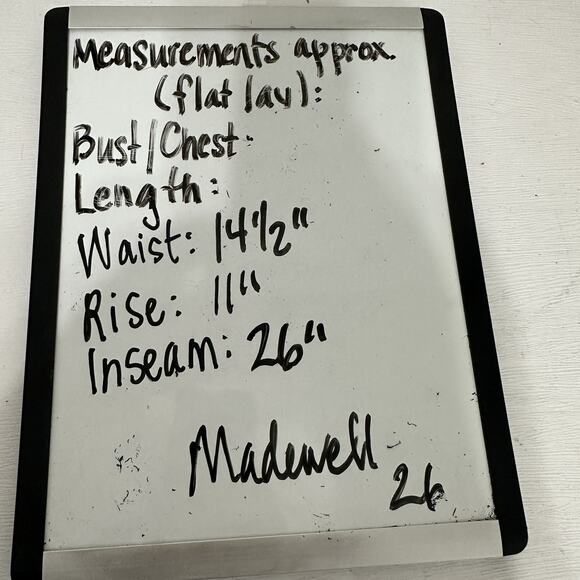 Measurements approx.
(flat lay):
Bust/Chest:
Length:
Waist: 14 1/2"
Rise: 11"
Inseam: 26"
Madewell
26